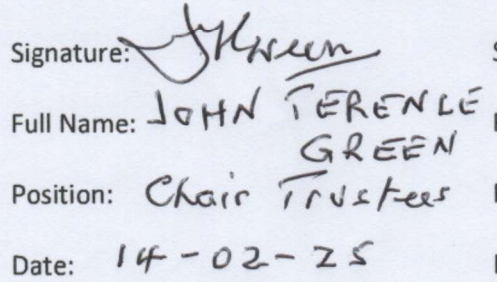 Signature: JTGreen
Full Name: JOHN TERENCE
GREEN
Position: Chair Trustees
Date: 14-02-25